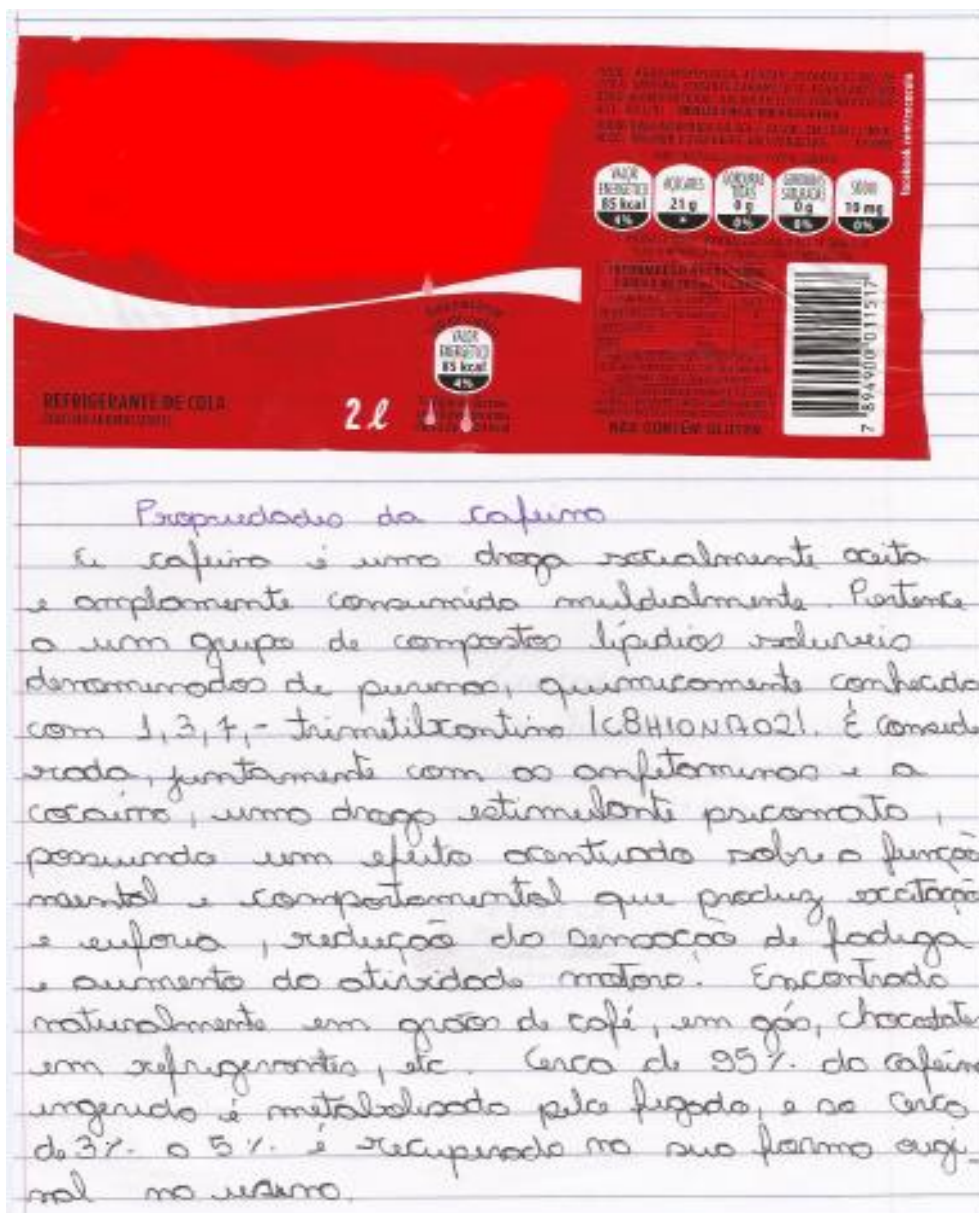 facebook.com/cocacola
VALOR ENERGÉTICO 85 kcal 4%
AÇÚCARES 21 g *
GORDURAS TOTAIS 0 g 0%
GORDURAS SATURADAS 0 g 0%
SÓDIO 10 mg 0%
VALOR ENERGÉTICO 85 kcal 4%
REFRIGERANTE DE COLA
2 l
NÃO CONTÉM GLÚTEN
7 894900 011517
Propriedades da cafeina
A cafeina é uma droga socialmente aceita
e amplamente consumida muldialmente. Pertence
a um grupo de compostos lipidios soluveis
denominados de purinas, quimicamente conhecida
com 1,3,7,- trimetilxantina (C8H10N4O2). É conside
rada, juntamente com as anfetaminas e a
cocaina, uma droga estimulante psicomato,
possuindo um efeito acentuado sobre a função
mental e comportamental que produz excitação
e euforia, redução da sensação de fadiga
e aumento da atividade motora. Encontrada
naturalmente em grãos de café, em gás, chocolate
em refrigerantes, etc. Cerca de 95% da cafeina
ingerida é metabolisada pelo figado, e so cerca
de 3% a 5% é recuperada na sua forma origi_
nal na urina.